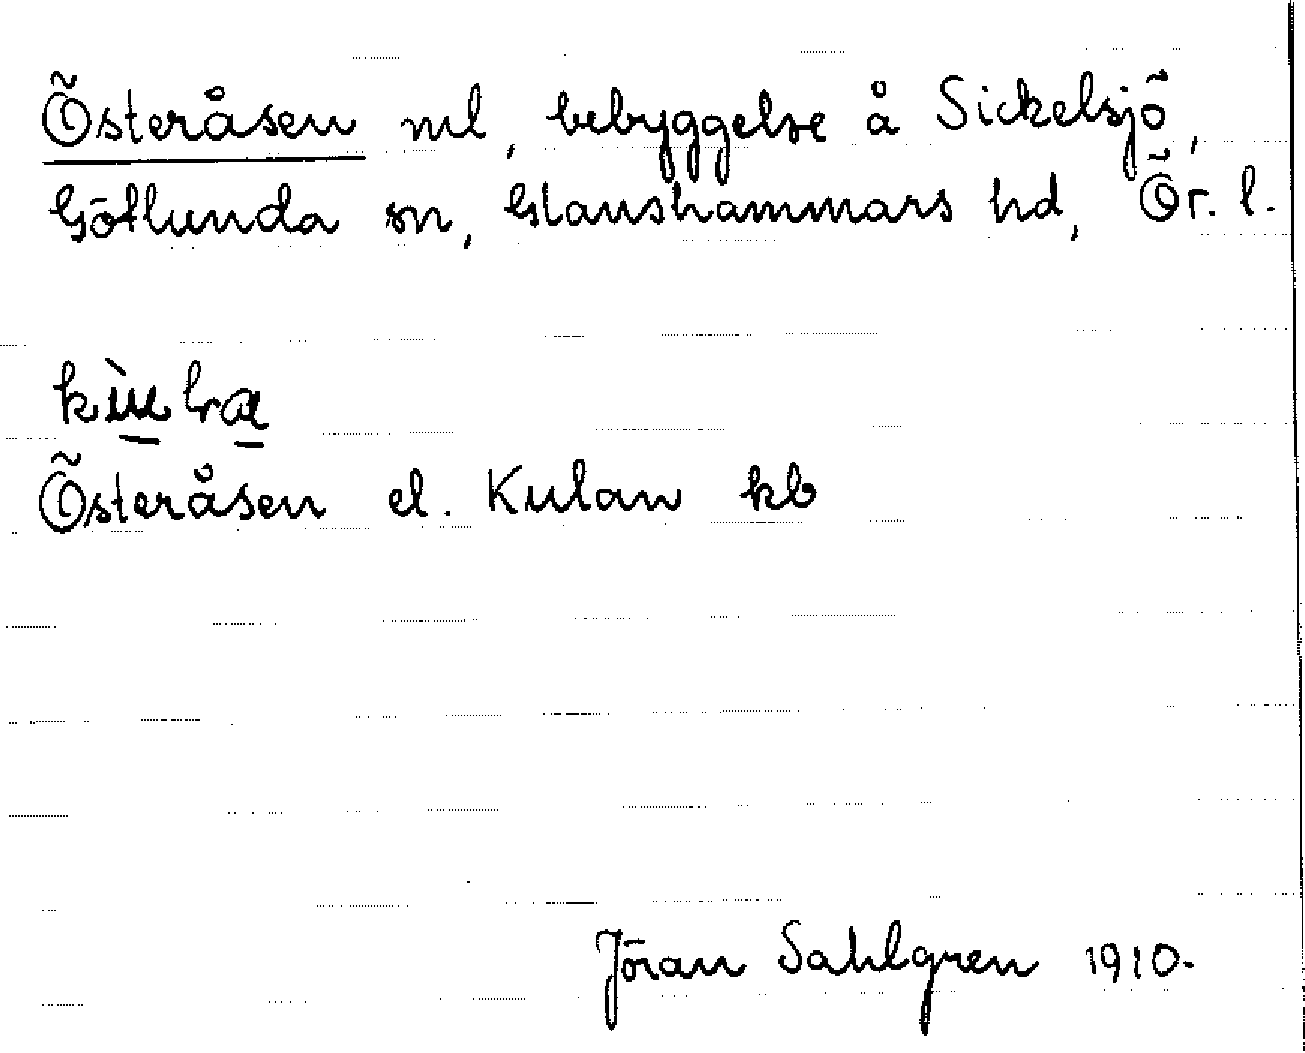 Österåsen ml, bebyggelse å Sickelsjö,
Götlunda sn, Glanshammars hd, Ör. l.
Österåsen el. Kulan kb
Jöran Sahlgren 1910.